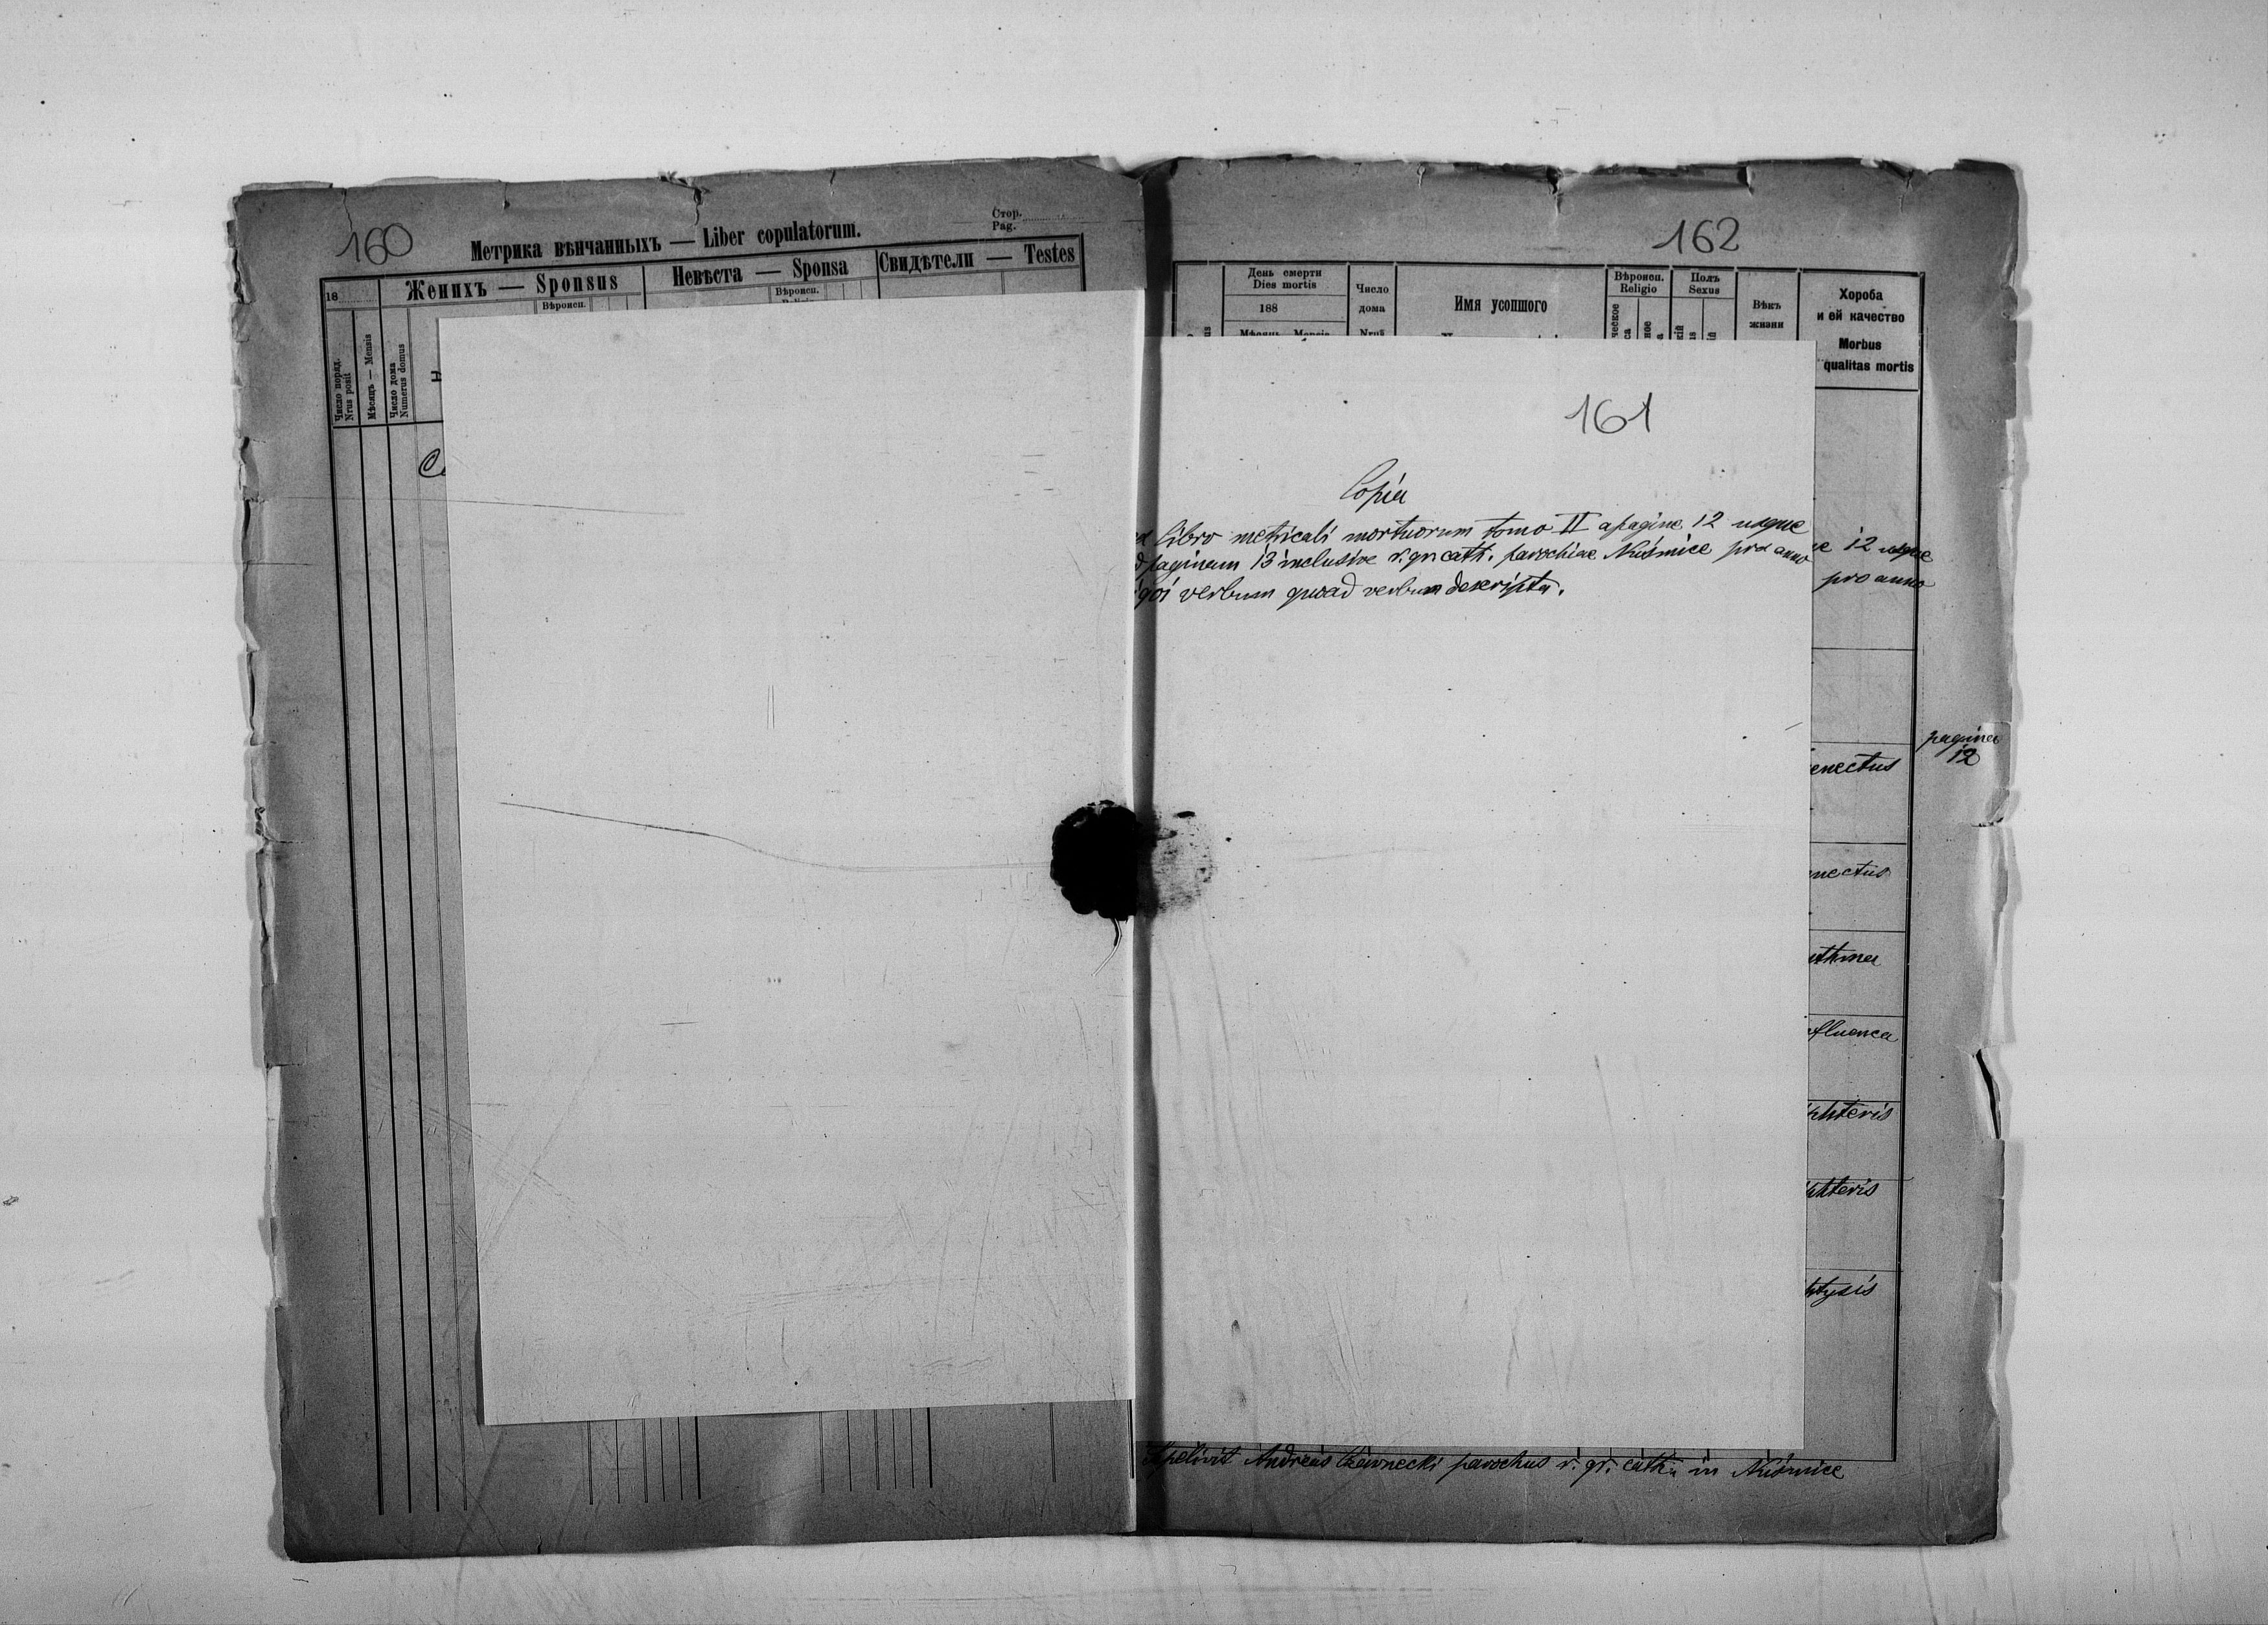 160
Метрика вѣнчанныхъ — Liber copulatorum.
Стор.
Pag.
18
Женихъ — Sponsus
Невѣста — Sponsa
Свидѣтели — Testes
Вѣроисп.
Вѣроисп.
Число поряд.
Nrus posit
Мѣсяць — Mensis
Число дома
Numerus domus
162
День смерти
Dies mortis
188
Мѣсяць Mensis
Число
дома
Nrus
Имя усопшого
Вѣроисп.
Religio
Полъ
Sexus
Вѣкъ
жизни
Хороба
и ей качество
Morbus
qualitas mortis
161
Copia
libro metricali mortuorum tomo II a pagina 12 usque
paginam 13 inclusive r. gr. cath. parochiae Kuśmice pro anno
verbum quoad verbum descripta.
12 usque
pro anno
pagina
12
enectus
nectus
sthma
fluenca
phteris
phteris
htysis
Andreas Czarnecki parochus r. gr. cath. in Kuśmice